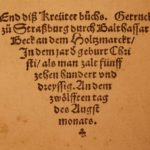 End diß Kreüter bůchs. Getruckt
zů Straßburg durch Balthassar
Beck an dem Holtzmarckt/
In dem jar d geburt Chri
sti/ als man zalt fünff
zehen hundert vnd
dreyssig. An dem
zwölfften tag
des Augst
monats.